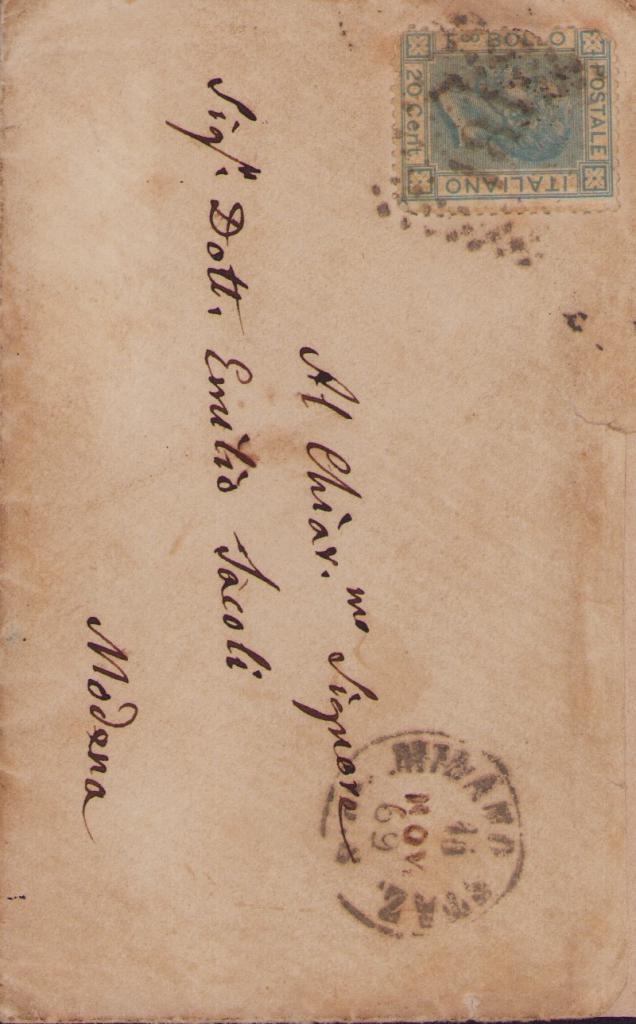 Fco BOLLO
POSTALE
ITALIANO
20 Cent.
Al Chiar.mo Signore
Sigr. Dott. Emilio Jacoli
Modena
MILANO
16
NOV.
69
STAZ